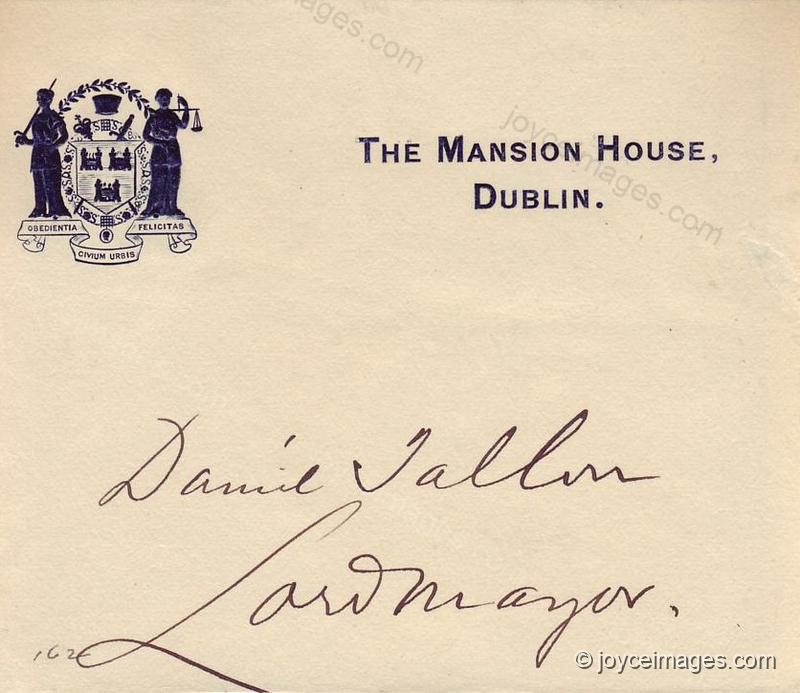 joyceimages.com
THE MANSION HOUSE,
DUBLIN.
joyceimages.com
OBEDIENTIA FELICITAS
CIVIUM URBIS
Daniel Tallon
Lord Mayor.
162
© joyceimages.com